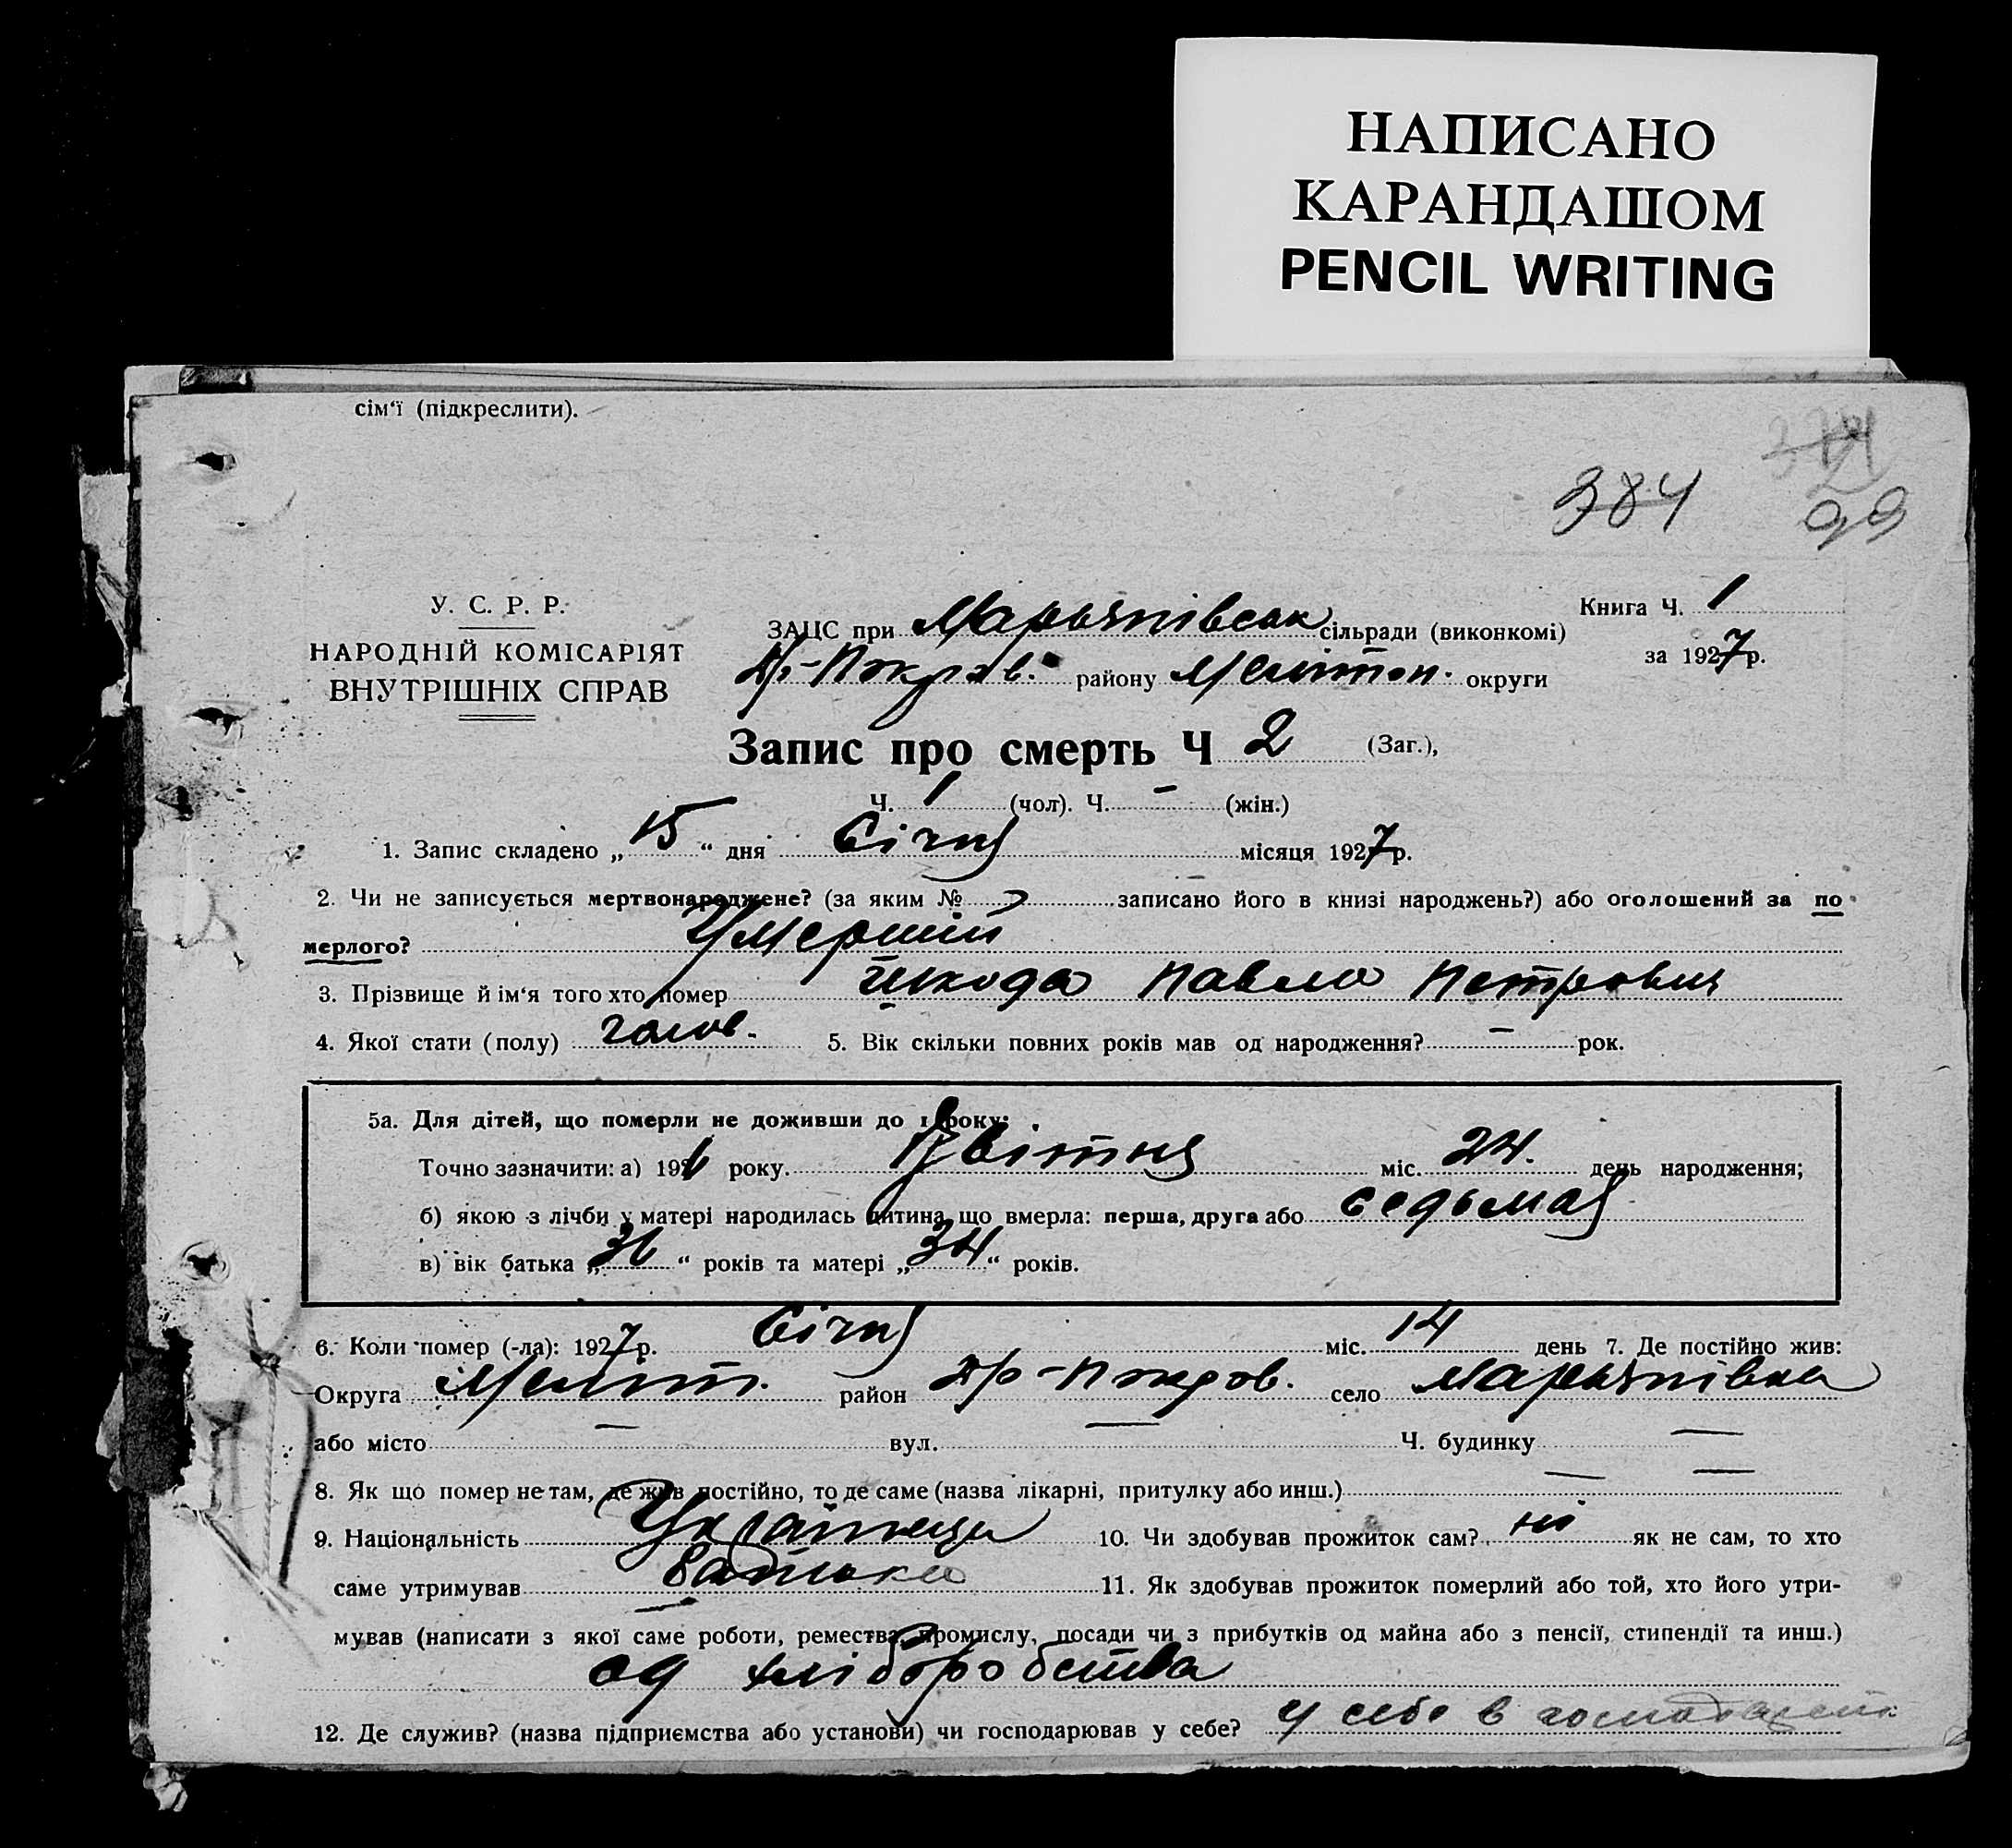 НАПИСАНО
КАРАНДАШОМ
PENCIL WRITING
сім'ї (підкреслити).
384
99
У. С. Р. Р.
НАРОДНІЙ КОМІСАРІЯТ
ВНУТРІШНІХ СПРАВ
ЗАЦС при Марьянівськ сільради (виконкомі)
Др-Покров. району Меліton. округи
Книга Ч. 1
за 1927 р.
Запис про смерть Ч 2 (Заг.),
Ч. 1 (чол). Ч. - (жін.)
1. Запис складено „15“ дня Січня місяця 1927 р.
2. Чи не записується мертвонароджене? (за яким № записано його в книзі народжень?) або оголошений за по
мерлого? Умерший
3. Прізвище й ім'я того хто помер Шкода Павло Петрович
4. Якої стати (полу) чолов. 5. Вік скільки повних років мав од народження? - рок.
5а. Для дітей, що померли не доживши до 1 року:
Точно зазначити: а) 1926 року. Квітня міс. 24. день народження;
б) якою з лічби у матері народилась дитина, що вмерла: перша, друга або седьмая
в) вік батька „36“ років та матері „34“ років.
6. Коли помер (-ла): 1927 р. Січня міс. 14 день 7. Де постійно жив:
Округа Меліт. район Др-Покров. село Марьянівка
або місто — вул. — Ч. будинку —
8. Як що помер не там, де жив постійно, то де саме (назва лікарні, притулку або инш.) — —
9. Національність Українець 10. Чи здобував прожиток сам? ні як не сам, то хто
саме утримував батько 11. Як здобував прожиток померлий або той, хто його утри-
мував (написати з якої саме роботи, ремества, промислу, посади чи з прибутків од майна або з пенсії, стипендії та инш.)
од хліборобства
12. Де служив? (назва підприємства або установи) чи господарював у себе? у себе в